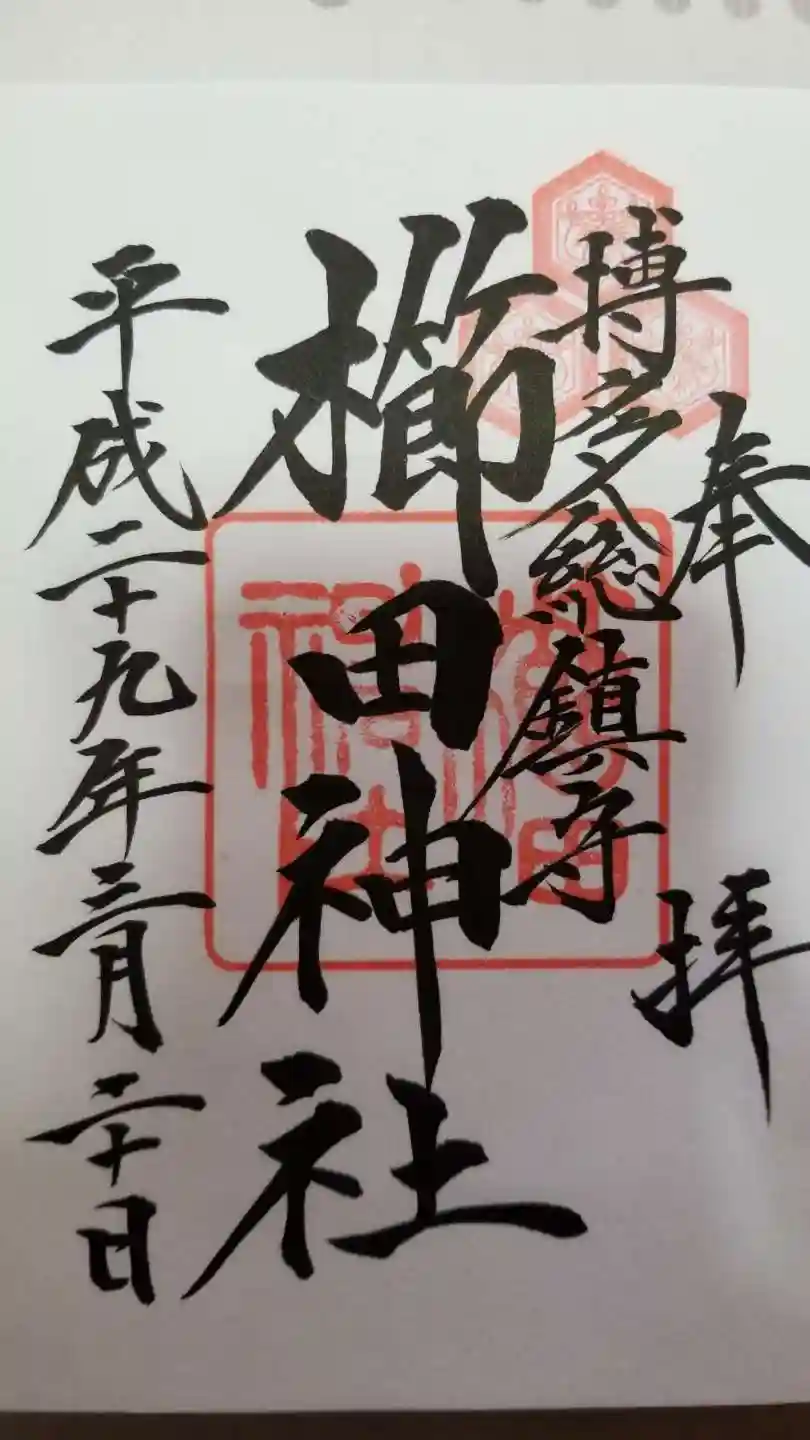 奉拝
博多総鎮守
櫛田神社
平成二十九年三月二十日
櫛田
神社